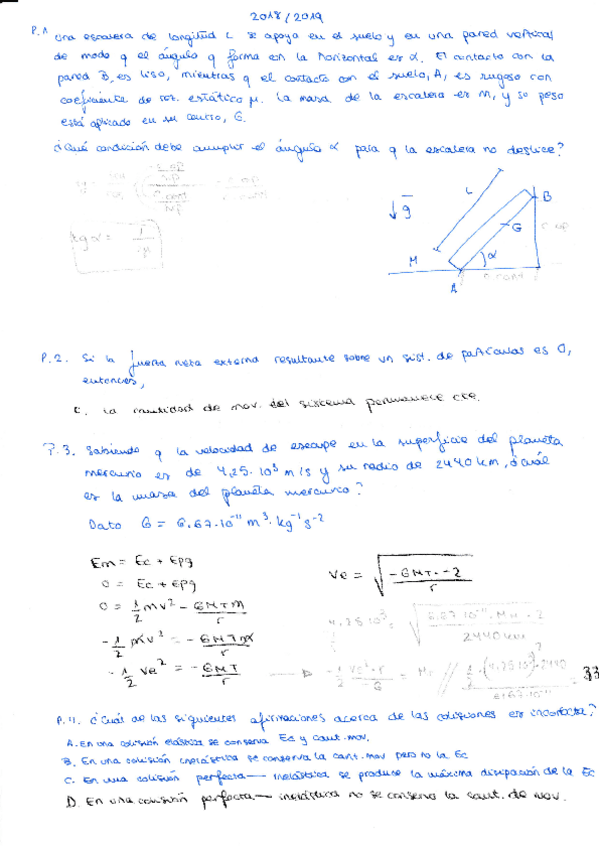 2018/2019
P.1 Una escalera de longitud L se apoya en el suelo y en una pared vertical
de modo q el ángulo q forma con la horizontal es α. El contacto con la
pared B, es liso, mientras q el contacto con el suelo, A, es rugoso con
coeficiente de roz. estático μ. La masa de la escalera es M, y su peso
está aplicado en su centro, G.
¿Qué condición debe cumplir el ángulo α para q la escalera no deslice?
tg α =
g
L
B
G
M
α
A
P.2. Si la fuerza neta externa resultante sobre un sist. de partículas es 0,
entonces,
C. La cantidad de mov. del sistema permanece cte.
P.3. Sabiendo q la velocidad de escape en la superficie del planeta
mercurio es de 4,25·10³ m/s y su radio de 2440 km, ¿cuál
es la masa del planeta mercurio?
Dato G = 6.67·10⁻¹¹ m³·kg⁻¹s⁻²
Em = Ec + Epg
0 = Ec + Epg
0 = 1/2 mv² - GMTm/r
-1/2 mv² = -GMTm/r
-1/2 ve² = -GMT/r
ve = √(-GMT·-2/r)
4,25·10³ = √(6.67·10⁻¹¹·MM·2/2440km)
P.4. ¿Cuál de las siguientes afirmaciones acerca de las colisiones es incorrecta?
A. En una colisión elástica se conserva Ec y cant. mov.
B. En una colisión inelástica se conserva la cant. mov pero no la Ec
C. En una colisión perfecta— inelástica se produce la máxima disipación de la Ec
D. En una colisión perfecta— inelástica no se conserva la cant. de mov.